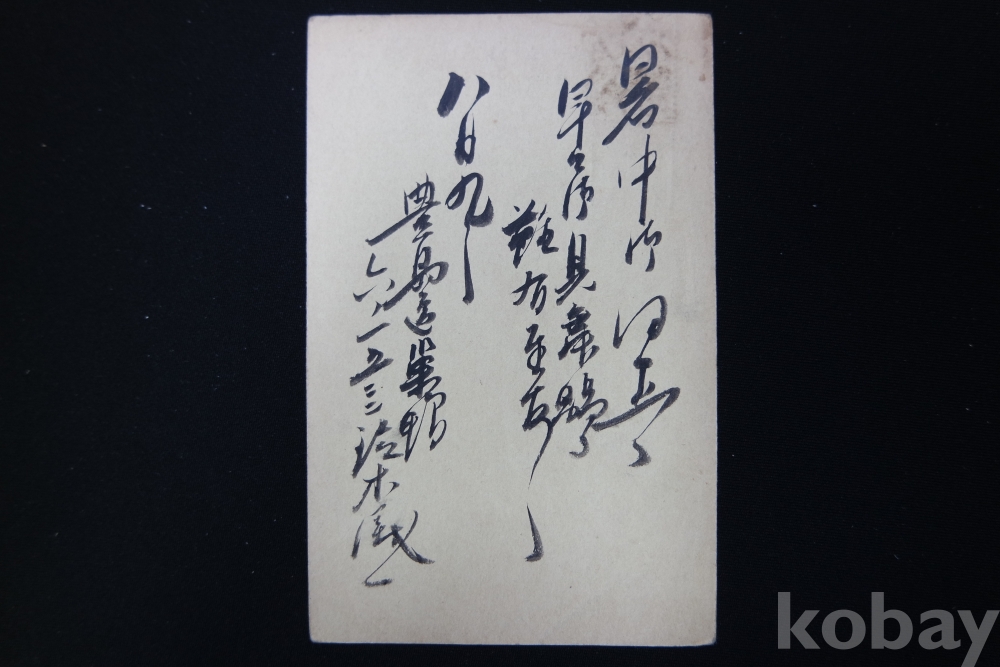 暑中御伺上候
早々御見舞賜り
難有至存候
八月九日
豊島区巣鴨
六ノ一五三三鈴木
kobay